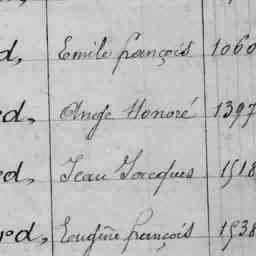 d, Emile françois 1060
ed, Ange Honoré 1397
ed, Jean Jacques 1518
rd, Eugène françois 1538